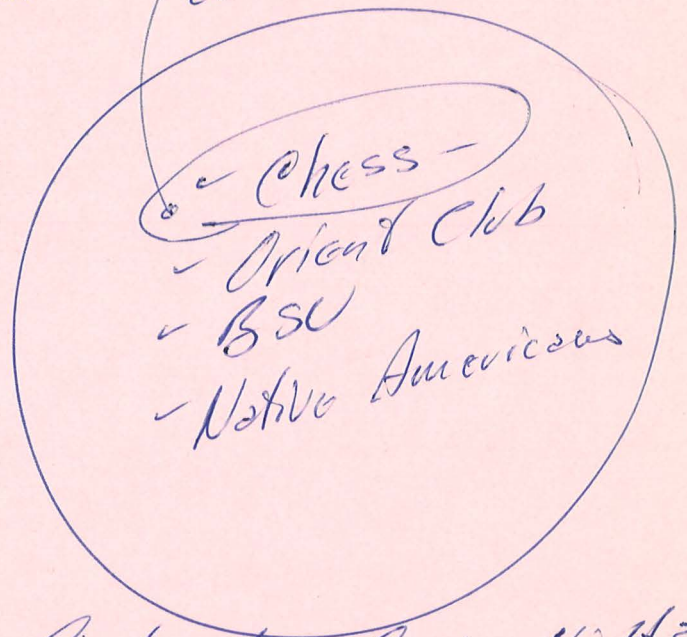 - Chess -
- Orient Club
- BSU
- Native Americans